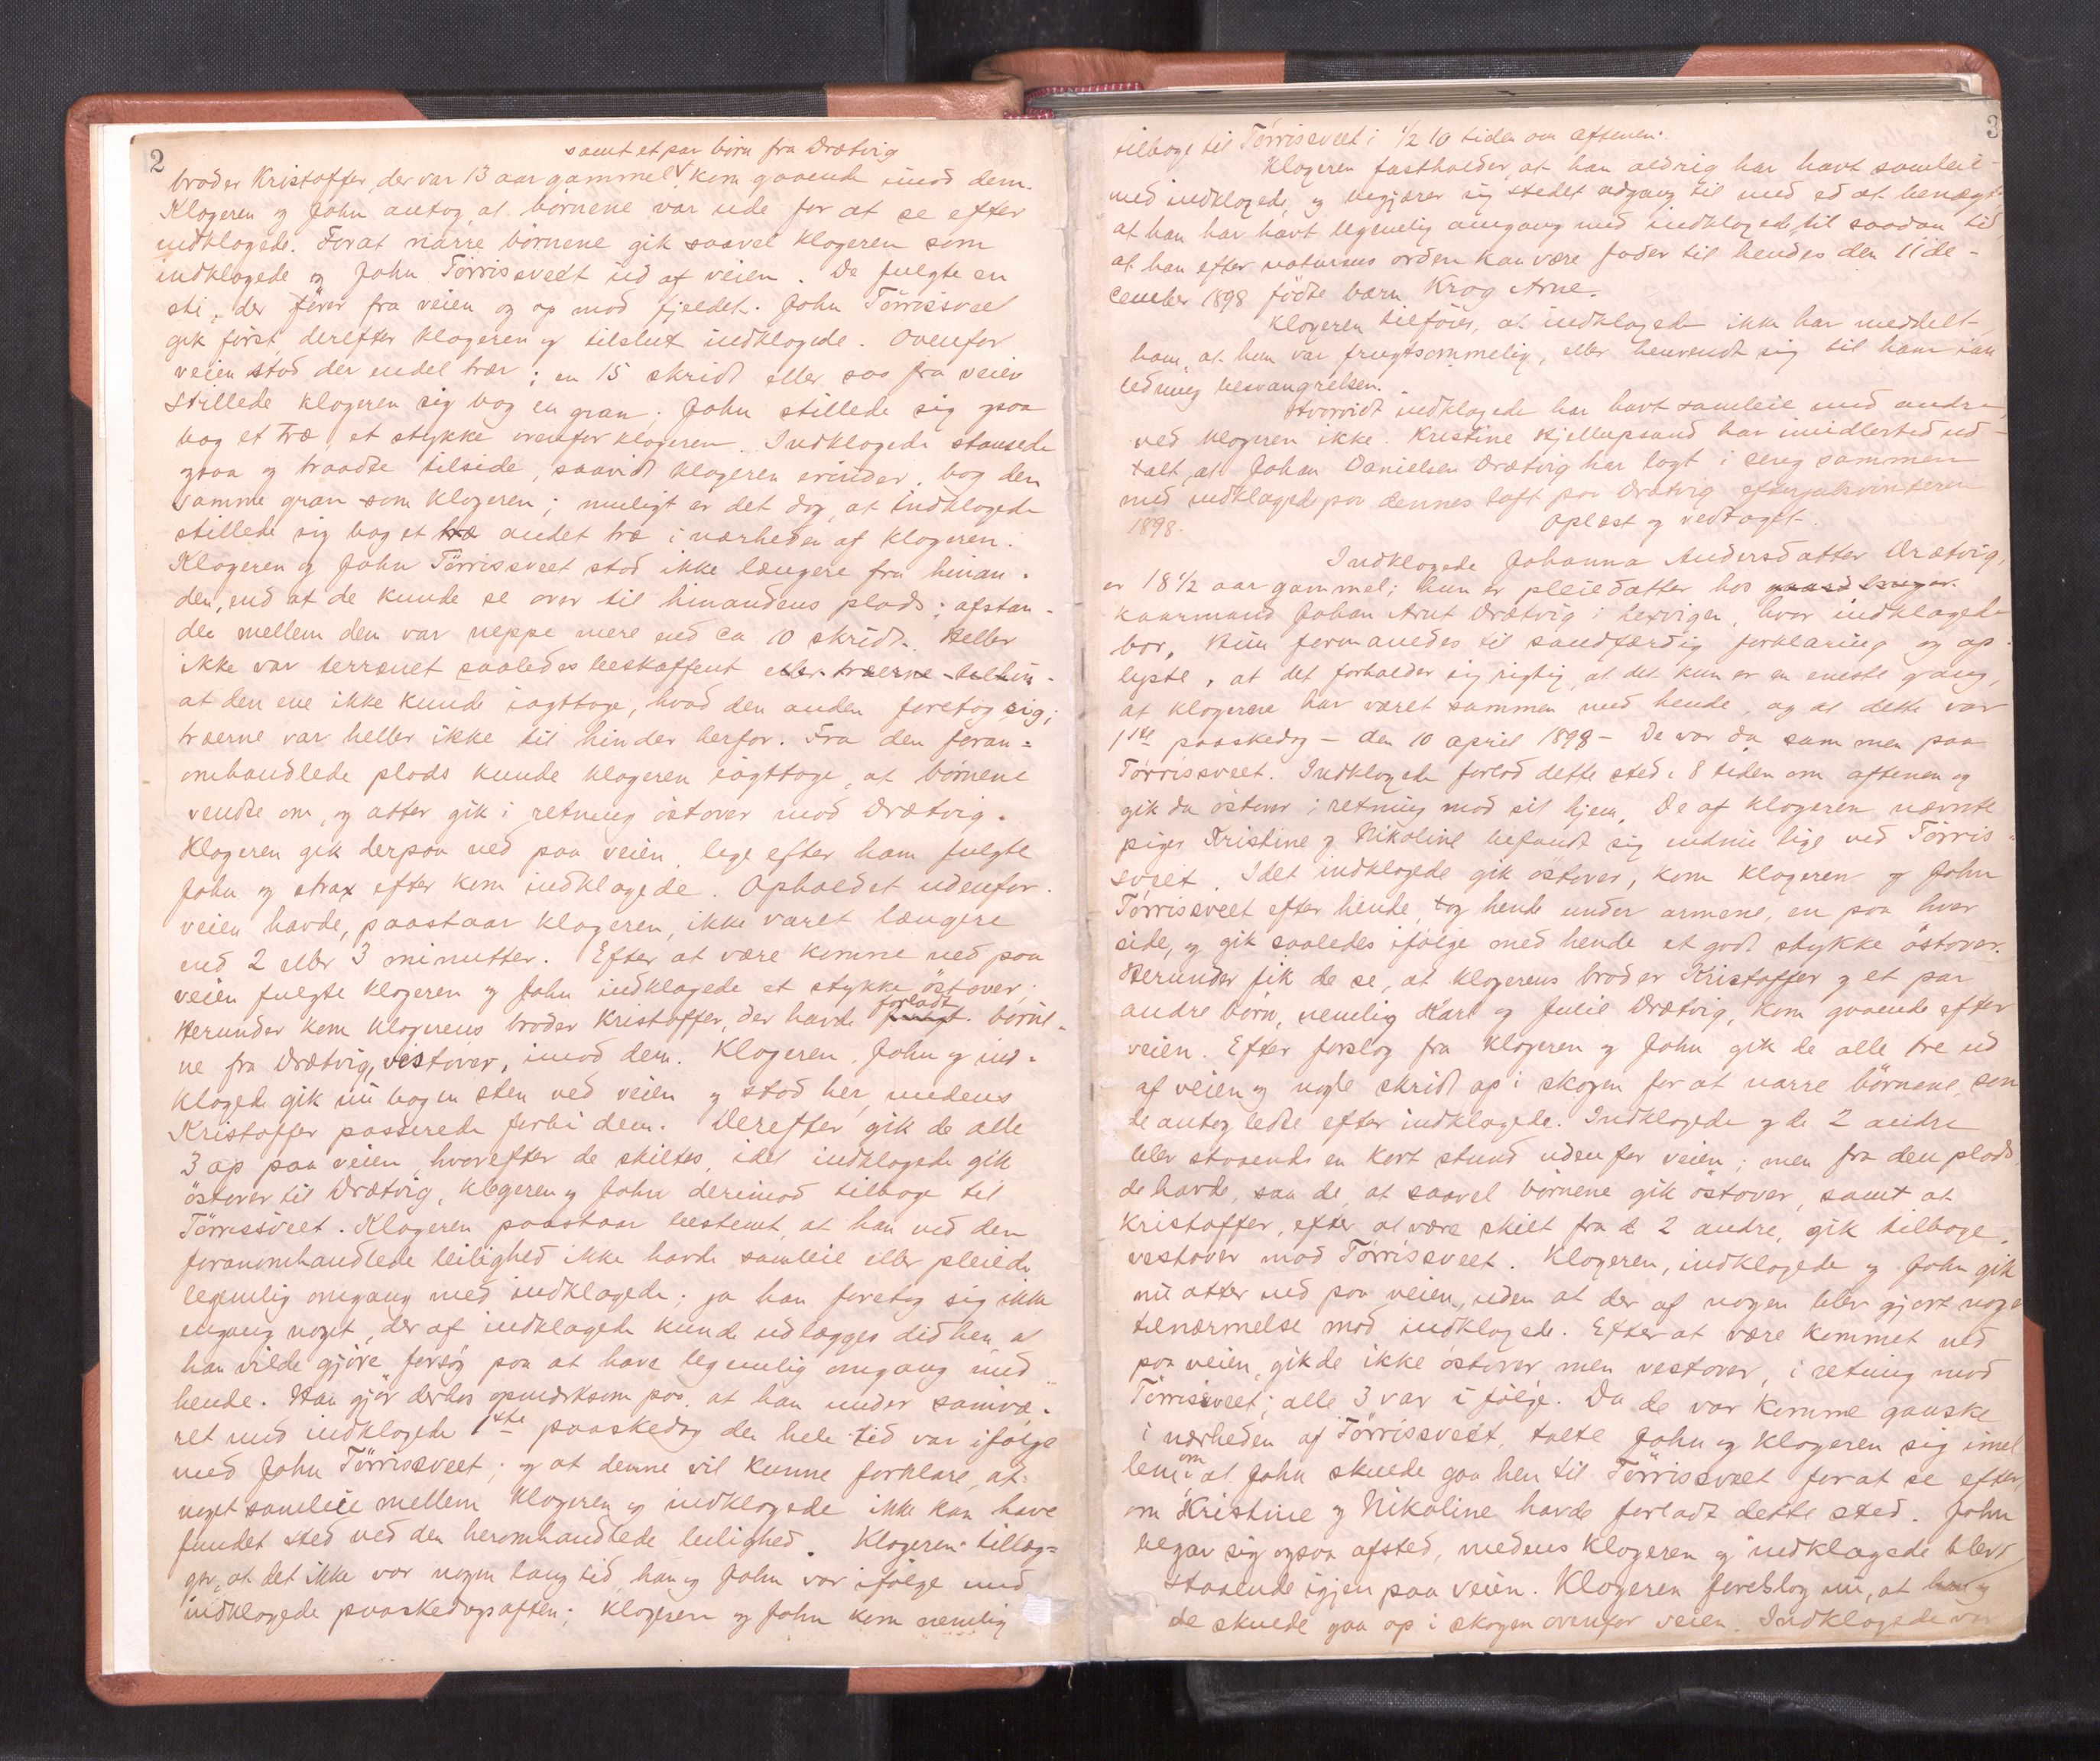 2
samt et par børn fra Drætvig
broder Kristoffer, der var 13 aar gammel, kom gaaende imod dem.
Klageren og John antog, at børnene var ude for at se efter
indklagede. Forat narre børnene gik saavel klageren som
indklagede og John Törrissveet ud af veien. De fulgte en
sti, der fører fra veien og op mod fjeldet. John Törrissveet
gik först, derefter klageren og tilslut indklagede. Ovenfor
veien stod der endel trær; en 15 skridt eller saa fra veien
stillede klageren sig bag en gran; John stillede sig ogsaa
bag et træ, et stykke ovenfor klageren. Indklagede stansede
ogsaa og traadte tilside, saavidt klageren erindrer, bag den
samme gran som klageren; muligt er det dog, at indklagede
stillede sig bag et træ andet træ i nærheden af klageren.
Klageren og John Törrissveet stod ikke længere fra hinan-
den, end at de kunde se over til hinandens plads; afstan-
den mellem dem var neppe mere end ca 10 skridt. Heller
ikke var terrænet saaledes beskaffent eller træerne til hin-
at den ene ikke kunde iagttage, hvad den anden foretog sig;
træerne var heller ikke til hinder herfor. Fra den foran-
omhandlede plads kunde klageren iagttage, at børnene
vendte om, og atter gik i retning östover mod Drætvig.
Klageren gik derpaa ned paa veien, lige efter ham fulgte
John og strax efter kom indklagede. Opholdet udenfor
veien havde, paastaar klageren, ikke varet længere
end 2 eller 3 minutter. Efter at være komne ned paa
veien fulgte klageren og John indklagede et stykke östover;
Herunder kom klagerens broder Kristoffer, der havde forladt børne-
ne fra Drætvig, vestover, imod dem. Klageren, John og ind-
klagede gik nu bag en sten ved veien og stod her, medens
Kristoffer passerede forbi dem. Derefter gik de alle
3 op paa veien, hvorefter de skiltes, idet indklagede gik
östover til Drætvig, klageren og John derimod tilbage til
Törrissveet. Klageren paastaar bestemt, at han ved den
foranomhandlede leilighed ikke havde samleie eller pleiede
legemlig omgang med indklagede; ja han foretog sig ikke
engang noget, der af indklagede kunde udlægges did hen, at
han vilde gjöre forsög paa at have legemlig omgang med
hende. Han gjör derhos opmærksom paa, at han under samvæ-
ret med indklagede 1ste paaskedag den hele tid var ifølge
med John Törrissveet; og at denne vil kunne forklare, at
noget samleie mellem klageren og indklagede ikke kan have
fundet sted ved den heromhandlede leilighed. Klageren tillæg-
ger, at det ikke var nogen lang tid, han og John var ifølge med
indklagede paaskedagsaften; klageren og John kom nemlig
3
tilbage til Törrissveet i ½ 10 tiden om aftenen.
Klageren fastholder, at han aldrig har havt samleie
med indklagede, og begjærer sig stedet adgang til med ed at benægte
at han har havt legemlig omgang med indklagede til saadan tid,
at han efter naturens orden kan være fader til hendes den 11 de-
cember 1898 födte barn Krag Arne.
Klageren tilföier, at indklagede ikke har meddelt
ham, at hun var frugtsommelig, eller henvendt sig til ham i an-
ledning besvangrelsen.
Hvorvidt indklagede har havt samleie med andre,
ved klageren ikke. Kristine Kjellupsand har imidlertid ud-
talt, at Johan Danielsen Drætvig har lagt i seng sammen
med indklagede paa dennes loft paa Drætvig efterjulsvinteren
1898.
Oplæst og vedtaget.
Indklagede Johanna Andersdatter Drætvig,
er 18½ aar gammel; hun er pleiedatter hos
kaarmand Johan Arnt Drætvig i herviger, hvor indklagede
bor. Hun formanedes til sandfærdig forklaring og op-
lyste, at det forholder sig rigtig, at det kun er en eneste gang,
at klageren har været sammen med hende, og at dette var
1ste paaskedag – den 10 april 1898 – De var da sammen paa
Törrissveet. Indklagede forlod dette sted i 8 tiden om aftenen og
gik da östover i retning mod sit hjem. De af klageren nævnte
piger Kristine og Nikoline befandt sig endnu lige ved Törris-
sveet. Idet indklagede gik östover, kom klageren og John
Törrissveet efter hende, tog hende under armene, en paa hver
side, og gik saaledes ifølge med hende et godt stykke östover.
Herunder fik de se, at klagerens broder Kristoffer og et par
andre børn, nemlig Karl og Julie Drætvig, kom gaaende efter
veien. Efter forslag fra klageren og John gik de alle tre ud
af veien og nogle skridt op i skogen for at narre børnene, som
de antog ledte efter indklagede. Indklagede og de 2 andre
blev staaende en kort stund udenfor veien; men fra den plads,
de havde, saa de, at saavel børnene gik östover, samt at
Kristoffer, efter at være skilt fra de 2 andre, gik tilbage,
vestover mod Törrissveet. Klageren, indklagede og John gik
nu atter ned paa veien, uden at der af nogen blev gjort nogen
tilnærmelse mod indklagede. Efter at være kommet ned
paa veien, gik de ikke östover, men vestover, i retning mod
Törrissveet; alle 3 var i følge. Da de var komne ganske
i nærheden af Törrissveet, talte John og klageren sig imel
lem om at John skulde gaa hen til Törrissveet for at se efter,
om Kristine og Nikoline havde forladt dette sted. John
begav sig ogsaa afsted, medens klageren og indklagede blev
staaende igjen paa veien. Klageren foreslog nu, at han og
de skulde gaa op i skogen ovenfor veien. Indklagede var